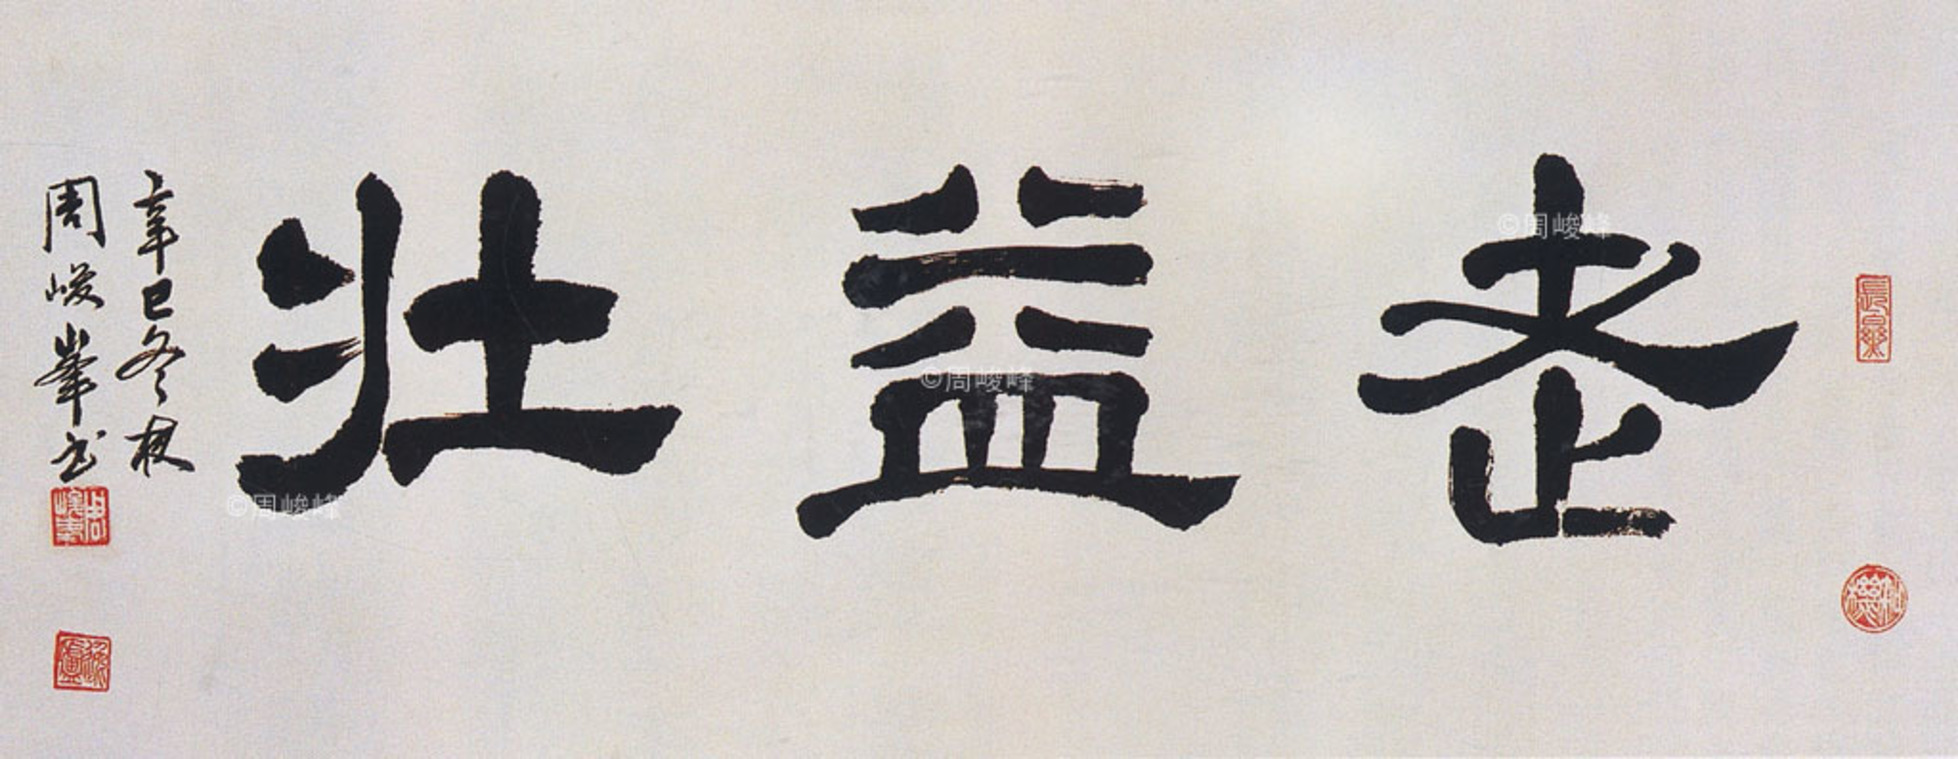 老益壯
辛巳冬杖
周峻峯书
©周峻峰
©周峻峰
©周峻峰